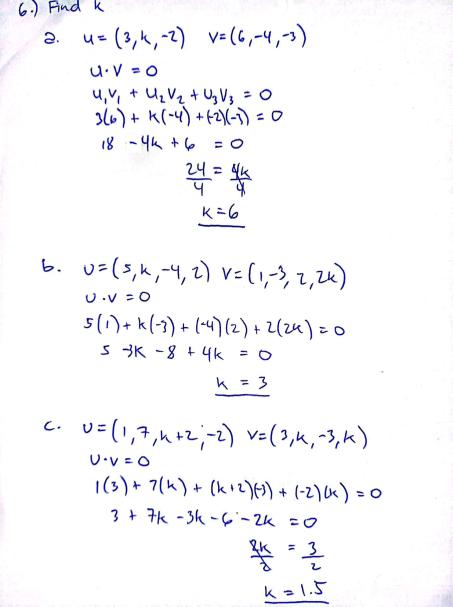 6.) Find k
a. u = (3, k, -2) v = (6, -4, -3)
u·v = 0
u₁v₁ + u₂v₂ + u₃v₃ = 0
3(6) + k(-4) + (-2)(-3) = 0
18 - 4k + 6 = 0
24/4 = 4k/4
k = 6
b. u = (5, k, -4, 2) v = (1, -3, 2, 2k)
u·v = 0
5(1) + k(-3) + (-4)(2) + 2(2k) = 0
5 - 3k - 8 + 4k = 0
k = 3
c. u = (1, 7, k+2, -2) v = (3, k, -3, k)
u·v = 0
1(3) + 7(k) + (k+2)(-3) + (-2)(k) = 0
3 + 7k - 3k - 6 - 2k = 0
2k/2 = 3/2
k = 1.5